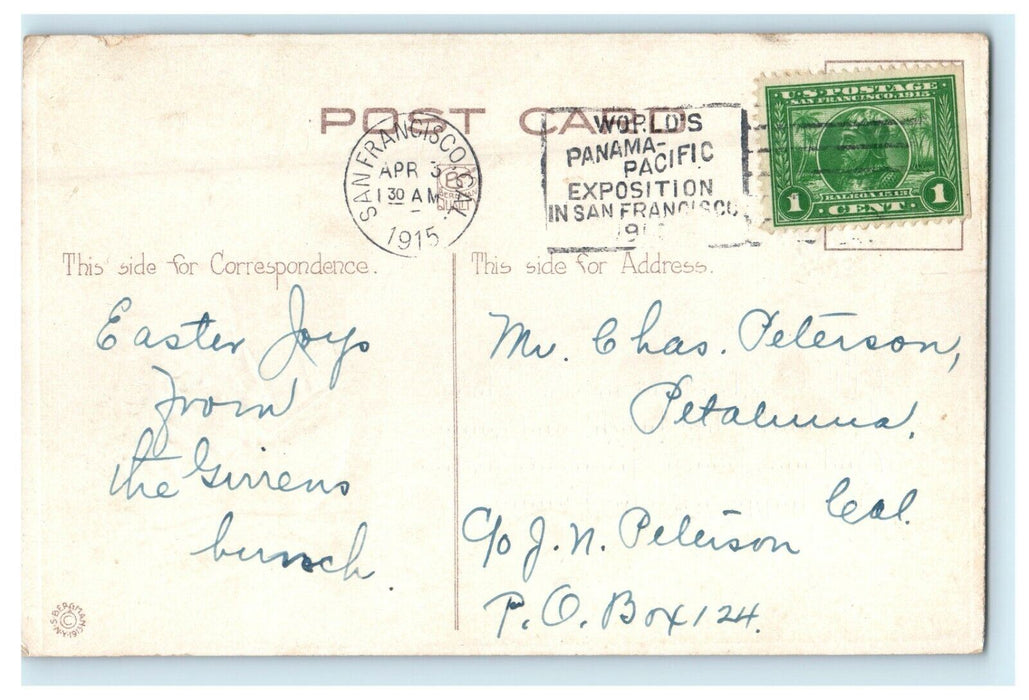 POST CARD
SAN FRANCISCO, CAL.
APR 3
1 30 AM
1915
WORLD'S
PANAMA-
PACIFIC
EXPOSITION
IN SAN FRANCISCO
U.S. POSTAGE
SAN FRANCISCO, 1915
BALBOA 1513
1 CENT 1
This side for Correspondence.
This side for Address.
Easter Joys
from
the Girrens
bunch.
Mr. Chas. Peterson,
Petaluma,
Cal.
c/o J. N. Peterson
P. O. Box 124.